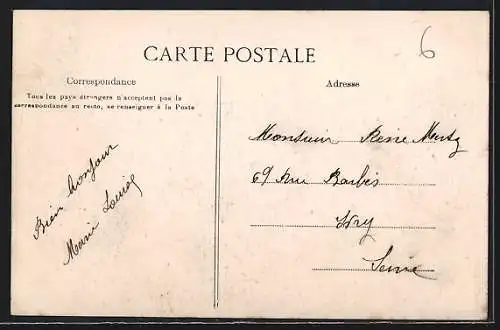 6
CARTE POSTALE
Correspondance
Tous les pays étrangers n'acceptent pas la
correspondance au recto, se renseigner à la Poste
Bien bonjour
Marie Louise
Adresse
Monsieur René
69 Rue Barbès
Ivry
Seine